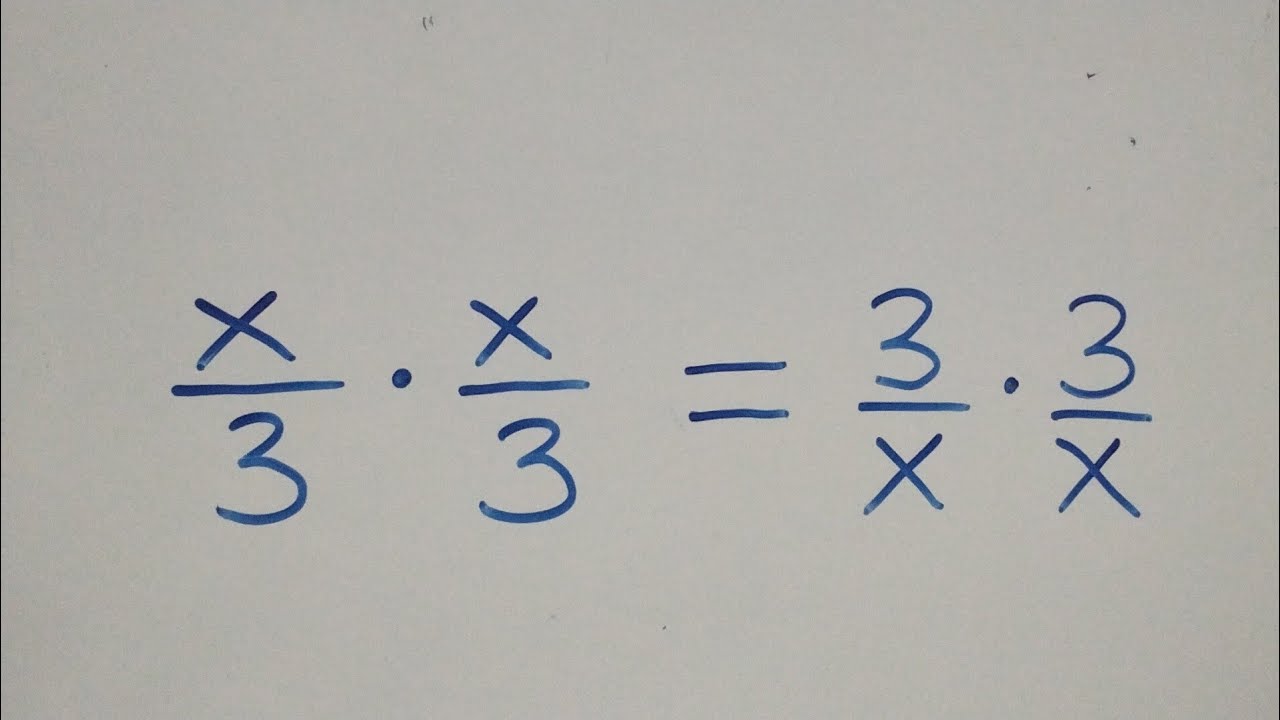 x/3 · x/3 = 3/x · 3/x